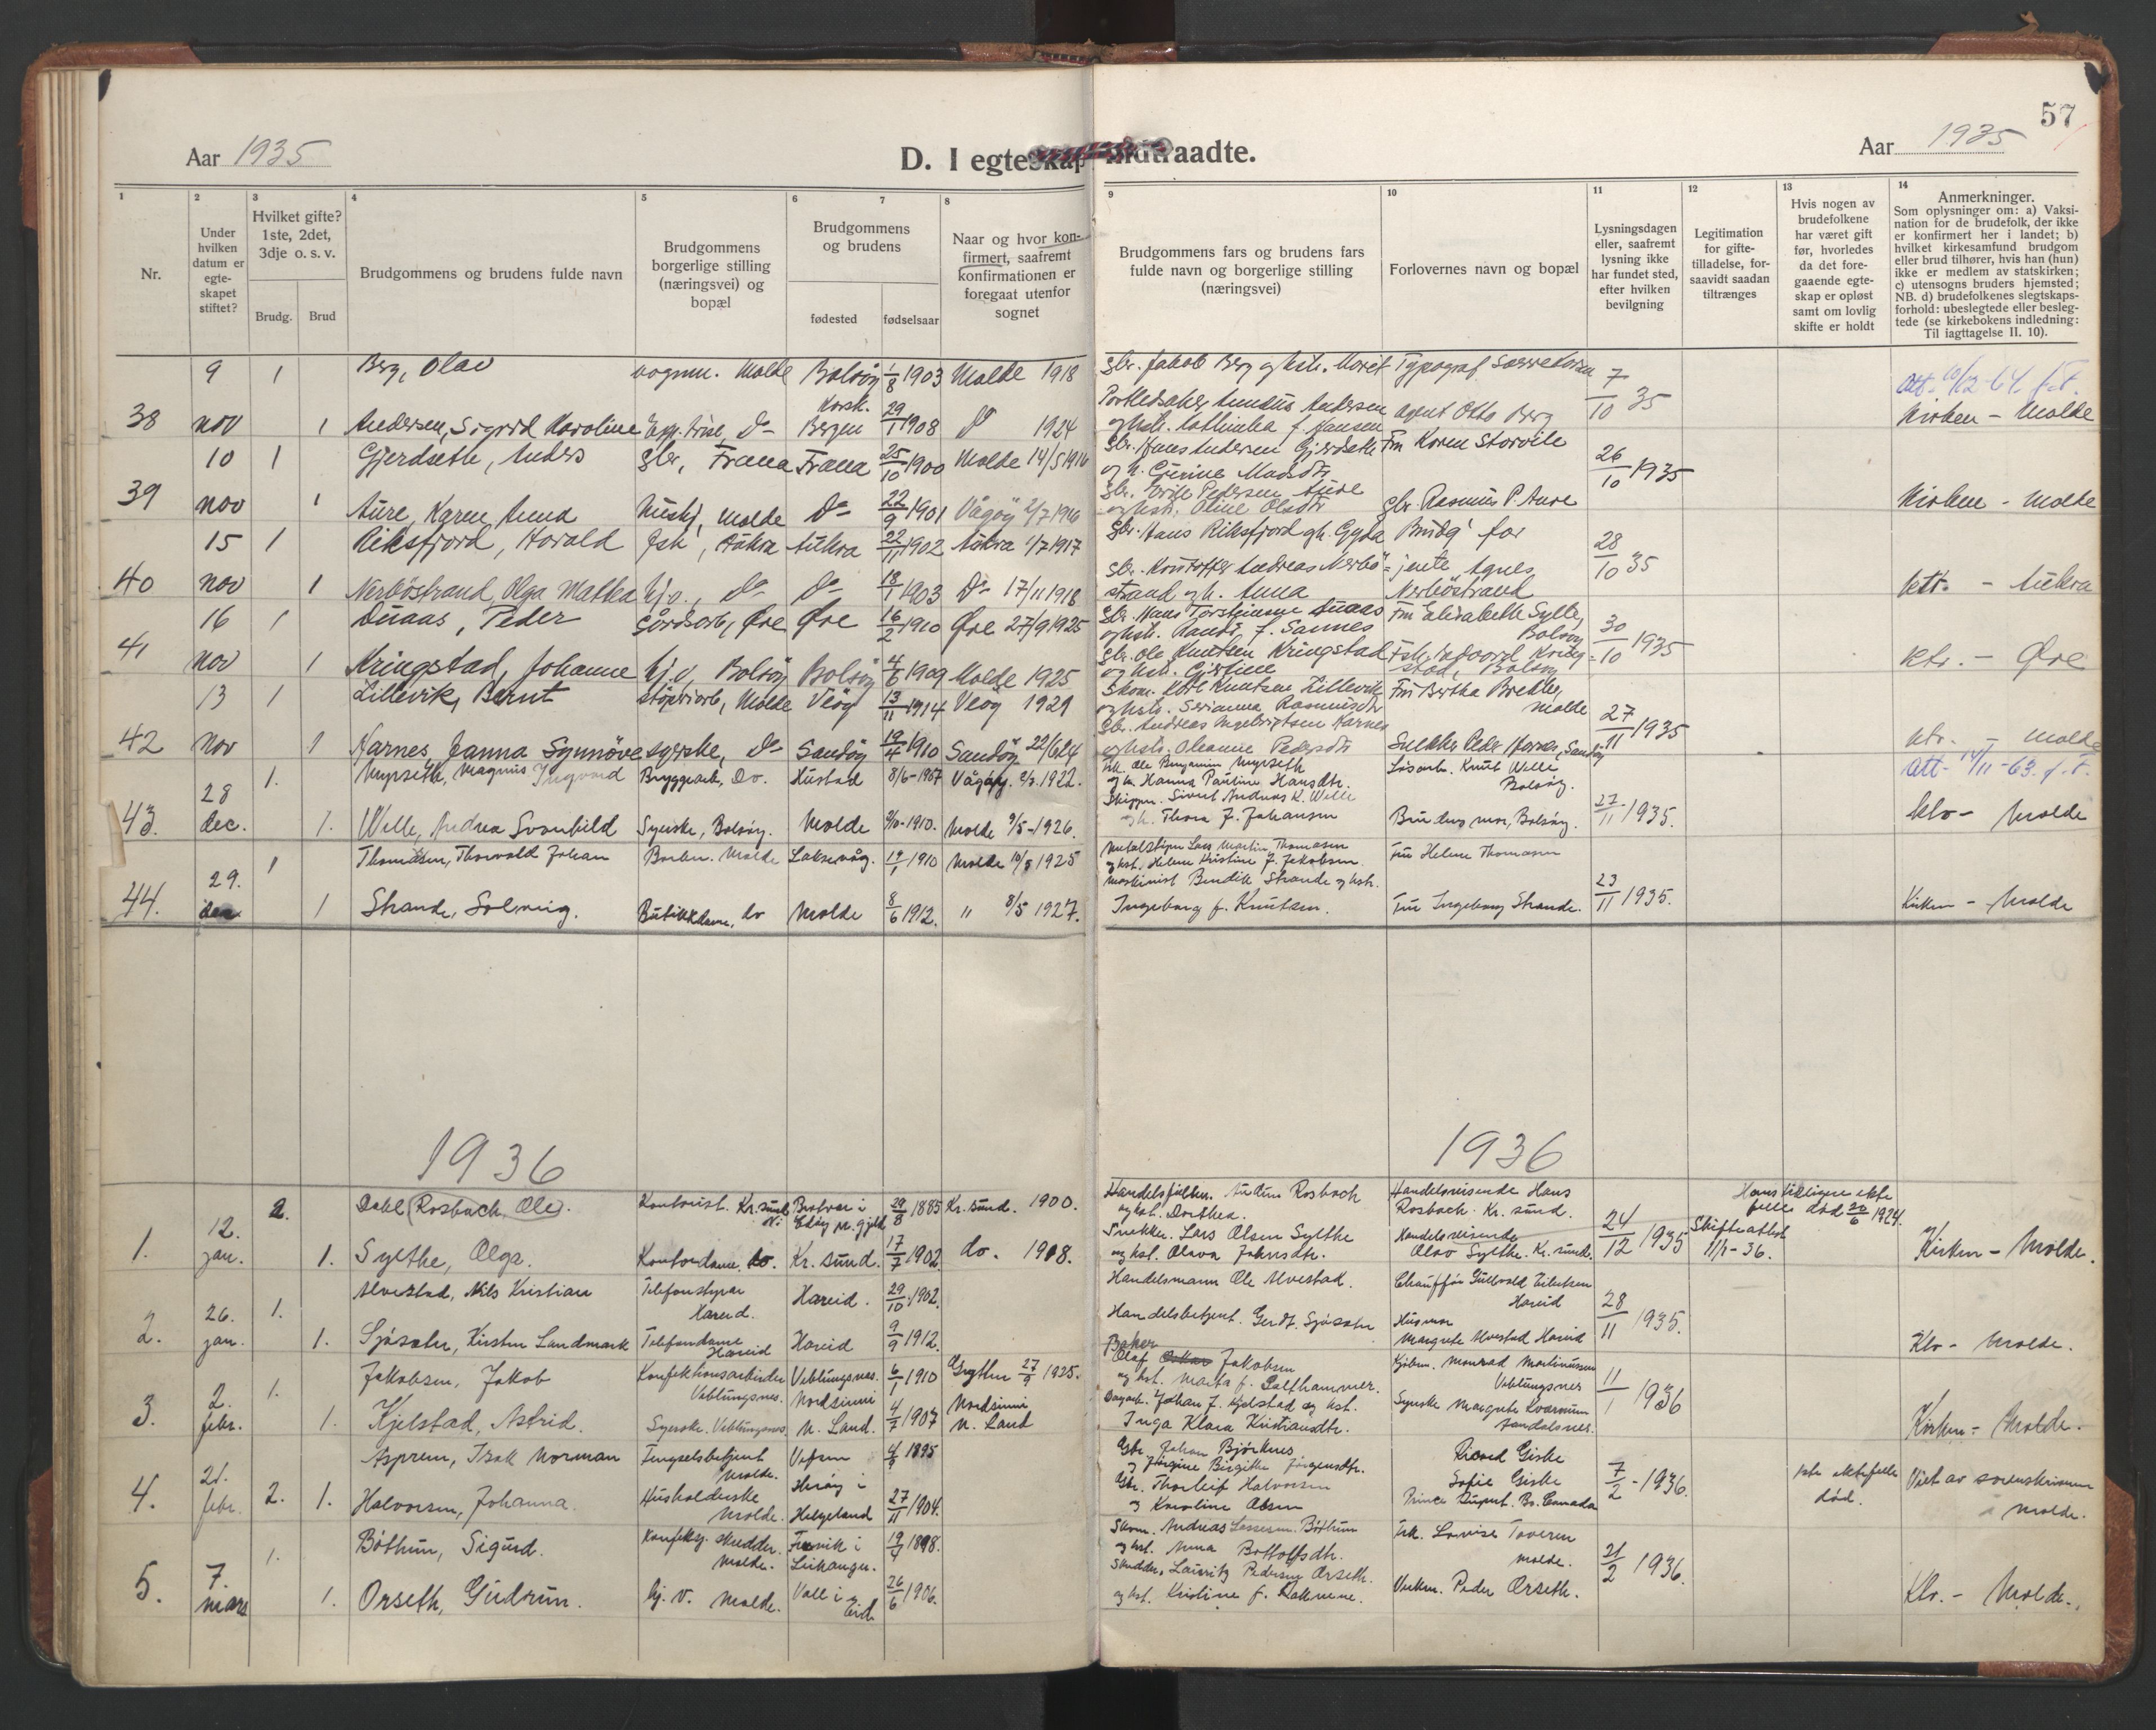 57
Aar 1935
D. I egteskap indtraadte.
Aar 1935
1 2 3 4 5 6 7 8 9 10 11 12 13 14
Nr.
Under hvilken datum er egte-skapet stiftet?
Hvilket gifte? 1ste, 2det, 3dje o. s. v.
Brudg. Brud
Brudgommens og brudens fulde navn
Brudgommens borgerlige stilling (næringsvei) og bopæl
Brudgommens og brudens
fødested fødselsaar
Naar og hvor kon-firmert, saafremt konfirmationen er foregaat utenfor sognet
Brudgommens fars og brudens fars fulde navn og borgerlige stilling (næringsvei)
Forlovernes navn og bopæl
Lysningsdagen eller, saafremt lysning ikke har fundet sted, efter hvilken bevilgning
Legitimation for gifte-tilladelse, for-saavidt saadan tiltrænges
Hvis nogen av brudefolkene har været gift før, hvorledes da det fore-gaaende egte-skap er opløst samt om lovlig skifte er holdt
Anmerkninger.
Som oplysninger om: a) Vaksi-nation for de brudefolk, der ikke er konfirmert her i landet; b) hvilket kirkesamfund brudgom eller brud tilhører, hvis han (hun) ikke er medlem av statskirken; c) utensogns bruders hjemsted; NB. d) brudefolkenes slegtskaps-forhold: ubeslegtede eller besleg-tede (se kirkebokens indledning: Til iagttagelse II. 10).
9 1 Berg, Olav vognm. Molde Bolsöy 1/8 1903 Molde 1918 Gbr. Jakob Berg og hstr. Marit Typograf 7/10 35 Att. 10/12-64. f.t.
38 nov 1 Andersen, Sigrid Karoline Exp. trise, Do Korsk. Bergen 29/1 1908 Do 1924 Andersen og hstr. f. Hansen agent Otto Berg Kirken - Molde
10 1 Gjerdseth, Anders gbr, Fræna Fræna 25/10 1900 Molde 14/5 1916 Gbr. Hans Andersen Gjerdseth og h. Gurine Madsdtr Fru Karen Storvik 26/10 1935
39 nov 1 Aure, Karen Anna Hushj, Molde Do 22/9 1901 Vågöy 2/7 1916 Gbr. Erik Pedersen Aure og hstr. Oline Olsdtr gbr. Rasmus P. Aure Kirken - Molde
15 1 Riksfjord, Harald fsk, Aukra Aukra 22/11 1902 Aukra 1/7 1917 Gbr. Hans Riksfjord og h. Gyda Brudg' far 28/10 35
40 nov 1 Nerböstrand, Olga Mathea hj.v., Do Do 18/1 1903 Do 17/11 1918 Gbr. Kristoffer Andreas Nerbö=strand og h. Anna jente Agnes Nerböstrand ktr. - Aukra
16 1 Duaas, Peder Gårdsarb, Öre Öre 16/2 1910 Öre 27/9 1925 Gbr. Hans Torsteinsen Duaas og hstr. Randi f. Sannes Fru Elisabeth Sylte, Bolsöy 30/10 1935
41 nov 1 Kringstad, Johanne hj.v, Bolsöy Bolsöy 4/6 1909 Molde 1925 Gbr. Ole Knutsen Kringstad og hstr. Gjertine Fsk. Edvard Kring=stad, Bolsöy ktr. - Öre
13 1 Lillevik, Bernt støperiarb, Molde Veöy 13/11 1914 Veöy 1929 Skom. Karl Knutsen Lillevik og hstr. Serianna Rasmusdtr Fru Bertha Brekke, Molde 27/11 1935
42 nov 1 Harnes, Janna Synnöve syerske, Do Sandöy 19/4 1910 Sandöy 22/6 24 Gbr. Andreas Ingebrigtsen Harnes og hstr. Oleanne Pedersdtr Snekker Peder Harnes, Sandöy ktr. - Molde
28 1. Myrseth, Magnus Ingvard Bryggearb, Do. Hustad 8/6-1907 Vågöy. 2/7. 1922. fsk. Ole Benjamin Myrseth og h. Hanna Pauline Hansdtr. Lösarb. Knut Wille Bolsöy. Att- 14/11-63. f.t.
43. dec. 1. Wille, Andrea Svanhild Syerske, Bolsöy. Molde 9/10-1910. Molde 9/5-1926. Skipper. Sivert Andreas K. Wille og h. Thora f. Johansen Brudens mor, Bolsöy. 27/11 1935. Ktr- Molde
29. 1 Thomasen, Thorvald Johan Molde Laksevåg. 19/1 1910 Molde 10/5 1925 Lars Martin Thomasen og hst. Helene Kristine f. Jakobsen. Fru Helene Thomasen
44. dec. 1 Strande, Solveig. Butikkdame, do Molde 8/6 1912. " 8/5 1927. Maskinist Bendik Strande og hstr. Ingeborg f. Knutsen. Fru Ingeborg Strande. 23/11 1935. Kirken - Molde
1936 1936
2. Dahl (Rosbach, Ole). Kontorist. Kr.sund N. Brattvær i Edöy pr.gjeld 29/8 1885 Kr.sund. 1900. Rosbach og hst. Dorthea. Handelsreisende Hans Rosbach. Kr. sund. Hans tidligere ektefelle död 20/6 1924.
1. 12. jan. 1. Sylthe, Olga. Kontordame. do. Kr. sund. 17/7 1902 do. 1918. Snekker. Lars Olsen Sylthe og hst. Olava Johnsdtr. Handelsreisende Olav Sylthe. Kr. sund. 24/12 1935 Skifteattest 11/1-36. Kirken - Molde.
26. 1. Alvestad, Nils Kristian Telefonstyrer Hareid. Hareid. 29/10 1902. Handelsmann Ole Alvestad. Chaufför Gullvald Eilertsen Hareid 28/11 1935.
2. jan. 1. Sjösæter, Kirsten Landmark Telefondame Hareid Hareid 9/9 1912. Handelsbetjent. Gerdt. Sjösæter Husmor Margrete Alvestad Hareid Ktr - Molde.
2. 1. Jakobsen, Jakob Konfektionsarbeider Veblungsnes. Veblungsnes. 6/1 1910 Grytten 27/9 1925. Baker Olaf Jakobsen og hst. Marta f. Galthammer. Kjöbm. Monrad Martinussen Veblungsnes 11/1 1936
3. febr. 1. Kjelstad, Astrid. Syerske. Veblungsnes Nordsinni N. Land. 4/7 1907 Nordsinni N. Land Dagarb. Johan J. Kjelstad og hst. Inga Klara Kristiansdtr. Syerske Margrete Kvarnum Åndalsnes. Kirken - Molde.
21. 2. Asprem, Isak Norman Fengselsbetjent Molde. Vefsen 4/9 1895 Gbr. Johan Björknes og Jörgine Birgitte Jörgensdtr. Rikard Giske Sofie Giske 7/2-1936. 1ste ektefelle död. Viet av sorenskriveren Molde.
4. febr. 1. Halvorsen, Johanna. Husholderske Molde. Heröy i Helgeland 27/11 1904. Gbr. Thorleif Halvorsen og Karoline Olsen Prince Rupert. Br. Canada
7. 1. Böthun, Sigurd. Konfeksj. skredder. Molde. Fresvik i Leikanger. 19/4 1898. Skom. Andreas Lassesen Böthun og hst. Anna Bottolfsdtr. Frk. Lovise Taverer Molde. 21/2 1936.
5. mars 1. Orseth, Gudrun. hj. v. Molde. Voll i Eid 26/6 1906. Skredder, Lauritz Pedersen Orseth. og hst. Kristine f. Peder Orseth. Ktr. - Molde.